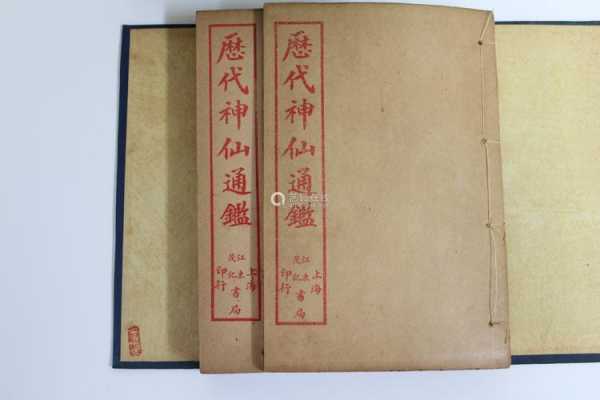 歷代神仙通鑑
上海
江東
茂記
書局
印行
歷代神仙通鑑
上海
江東
茂記
書局
印行